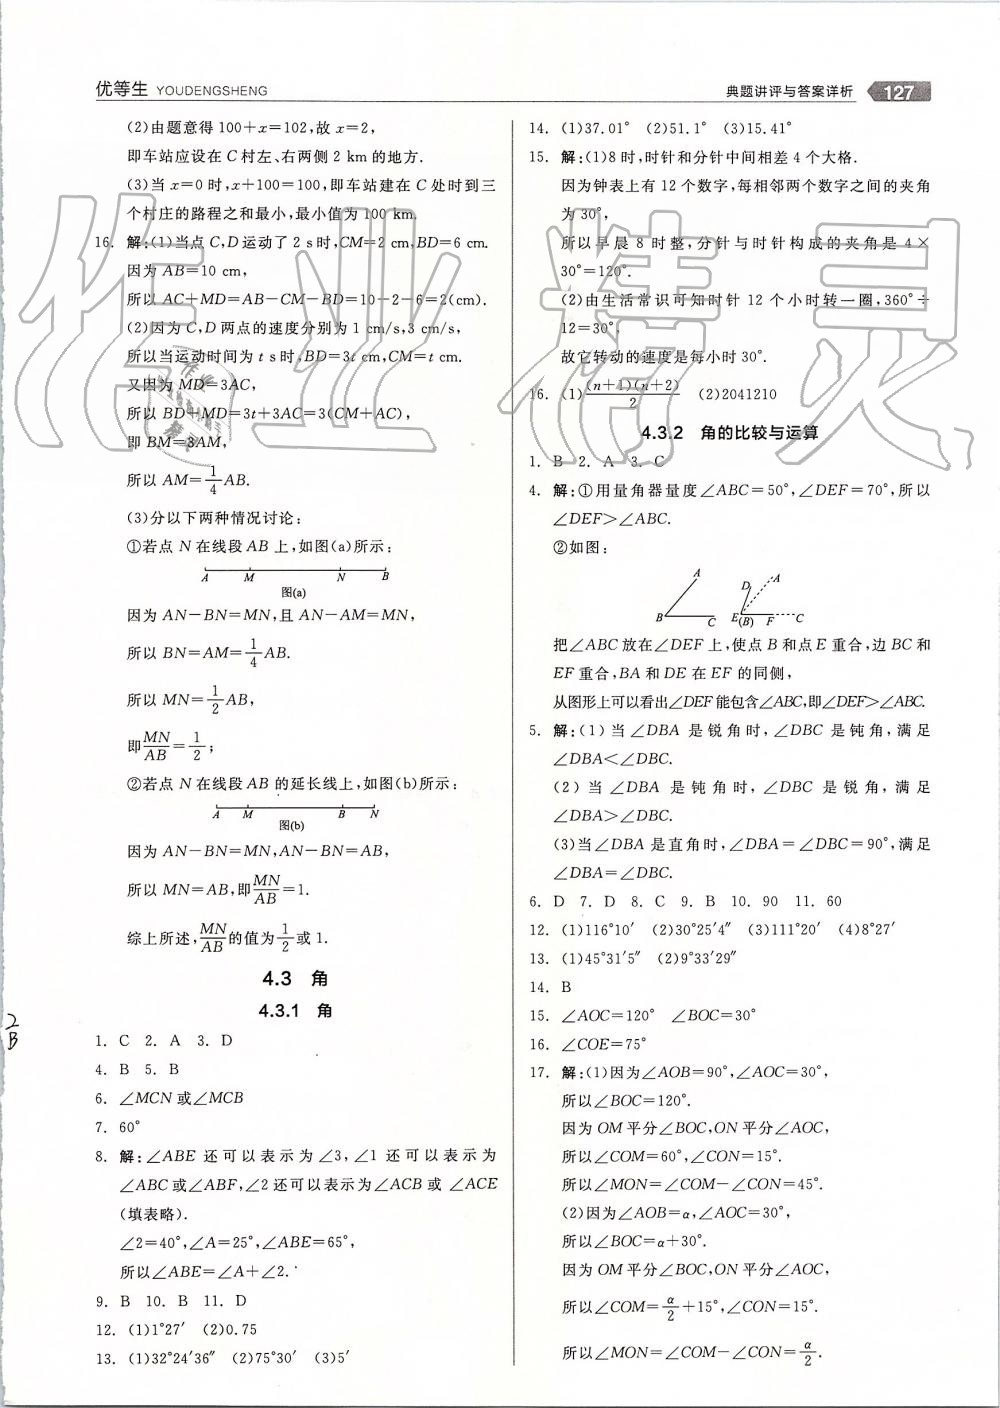 优等生 YOUDENGSHENG
典题讲评与答案详析 127
(2)由题意得100+x=102,故x=2,
即车站应设在C村左、右两侧2 km的地方.
(3)当x=0时,x+100=100,即车站建在C处时到三
个村庄的路程之和最小,最小值为100 km.
16. 解:(1)当点C,D运动了2 s时,CM=2 cm,BD=6 cm.
因为AB=10 cm,
所以AC+MD=AB-CM-BD=10-2-6=2(cm).
(2)因为C,D两点的速度分别为1 cm/s,3 cm/s,
所以当运动时间为t s时,BD=3t cm,CM=t cm.
又因为MD=3AC,
所以BD+MD=3t+3AC=3(CM+AC),
即BM=3AM,
所以AM=1/4 AB.
(3)分以下两种情况讨论:
①若点N在线段AB上,如图(a)所示:
A M N B
图(a)
因为AN-BN=MN,且AN-AM=MN,
所以BN=AM=1/4 AB.
所以MN=1/2 AB,
即MN/AB=1/2;
②若点N在线段AB的延长线上,如图(b)所示:
A M B N
图(b)
因为AN-BN=MN,AN-BN=AB,
所以MN=AB,即MN/AB=1.
综上所述,MN/AB的值为1/2或1.
4.3 角
4.3.1 角
2
B
1. C 2. A 3. D
4. B 5. B
6. ∠MCN或∠MCB
7. 60°
8. 解:∠ABE还可以表示为∠3,∠1还可以表示为
∠ABC或∠ABF,∠2还可以表示为∠ACB或∠ACE
(填表略).
∠2=40°,∠A=25°,∠ABE=65°,
所以∠ABE=∠A+∠2.
9. B 10. B 11. D
12. (1)1°27′ (2)0.75
13. (1)32°24′36″ (2)75°30′ (3)5′
14. (1)37.01° (2)51.1° (3)15.41°
15. 解:(1)8时,时针和分针中间相差4个大格.
因为钟表上有12个数字,每相邻两个数字之间的夹角
为30°,
所以早晨8时整,分针与时针构成的夹角是4×
30°=120°.
(2)由生活常识可知时针12个小时转一圈,360°÷
12=30°.
故它转动的速度是每小时30°.
16. (1)(n+1)(n+2)/2 (2)2041210
4.3.2 角的比较与运算
1. B 2. A 3. C
4. 解:①用量角器量度∠ABC=50°,∠DEF=70°,所以
∠DEF>∠ABC.
②如图:
A B C D A E(B) F C
把∠ABC放在∠DEF上,使点B和点E重合,边BC和
EF重合,BA和DE在EF的同侧,
从图形上可以看出∠DEF能包含∠ABC,即∠DEF>∠ABC.
5. 解:(1)当∠DBA是锐角时,∠DBC是钝角,满足
∠DBA<∠DBC.
(2)当∠DBA是钝角时,∠DBC是锐角,满足
∠DBA>∠DBC.
(3)当∠DBA是直角时,∠DBA=∠DBC=90°,满足
∠DBA=∠DBC.
6. D 7. D 8. C 9. B 10. 90 11. 60
12. (1)116°10′ (2)30°25′4″ (3)111°20′ (4)8°27′
13. (1)45°31′5″ (2)9°33′29″
14. B
15. ∠AOC=120° ∠BOC=30°
16. ∠COE=75°
17. 解:(1)因为∠AOB=90°,∠AOC=30°,
所以∠BOC=120°.
因为OM平分∠BOC,ON平分∠AOC,
所以∠COM=60°,∠CON=15°.
所以∠MON=∠COM-∠CON=45°.
(2)因为∠AOB=α,∠AOC=30°,
所以∠BOC=α+30°.
因为OM平分∠BOC,ON平分∠AOC,
所以∠COM=α/2+15°,∠CON=15°.
所以∠MON=∠COM-∠CON=α/2.
作业精灵